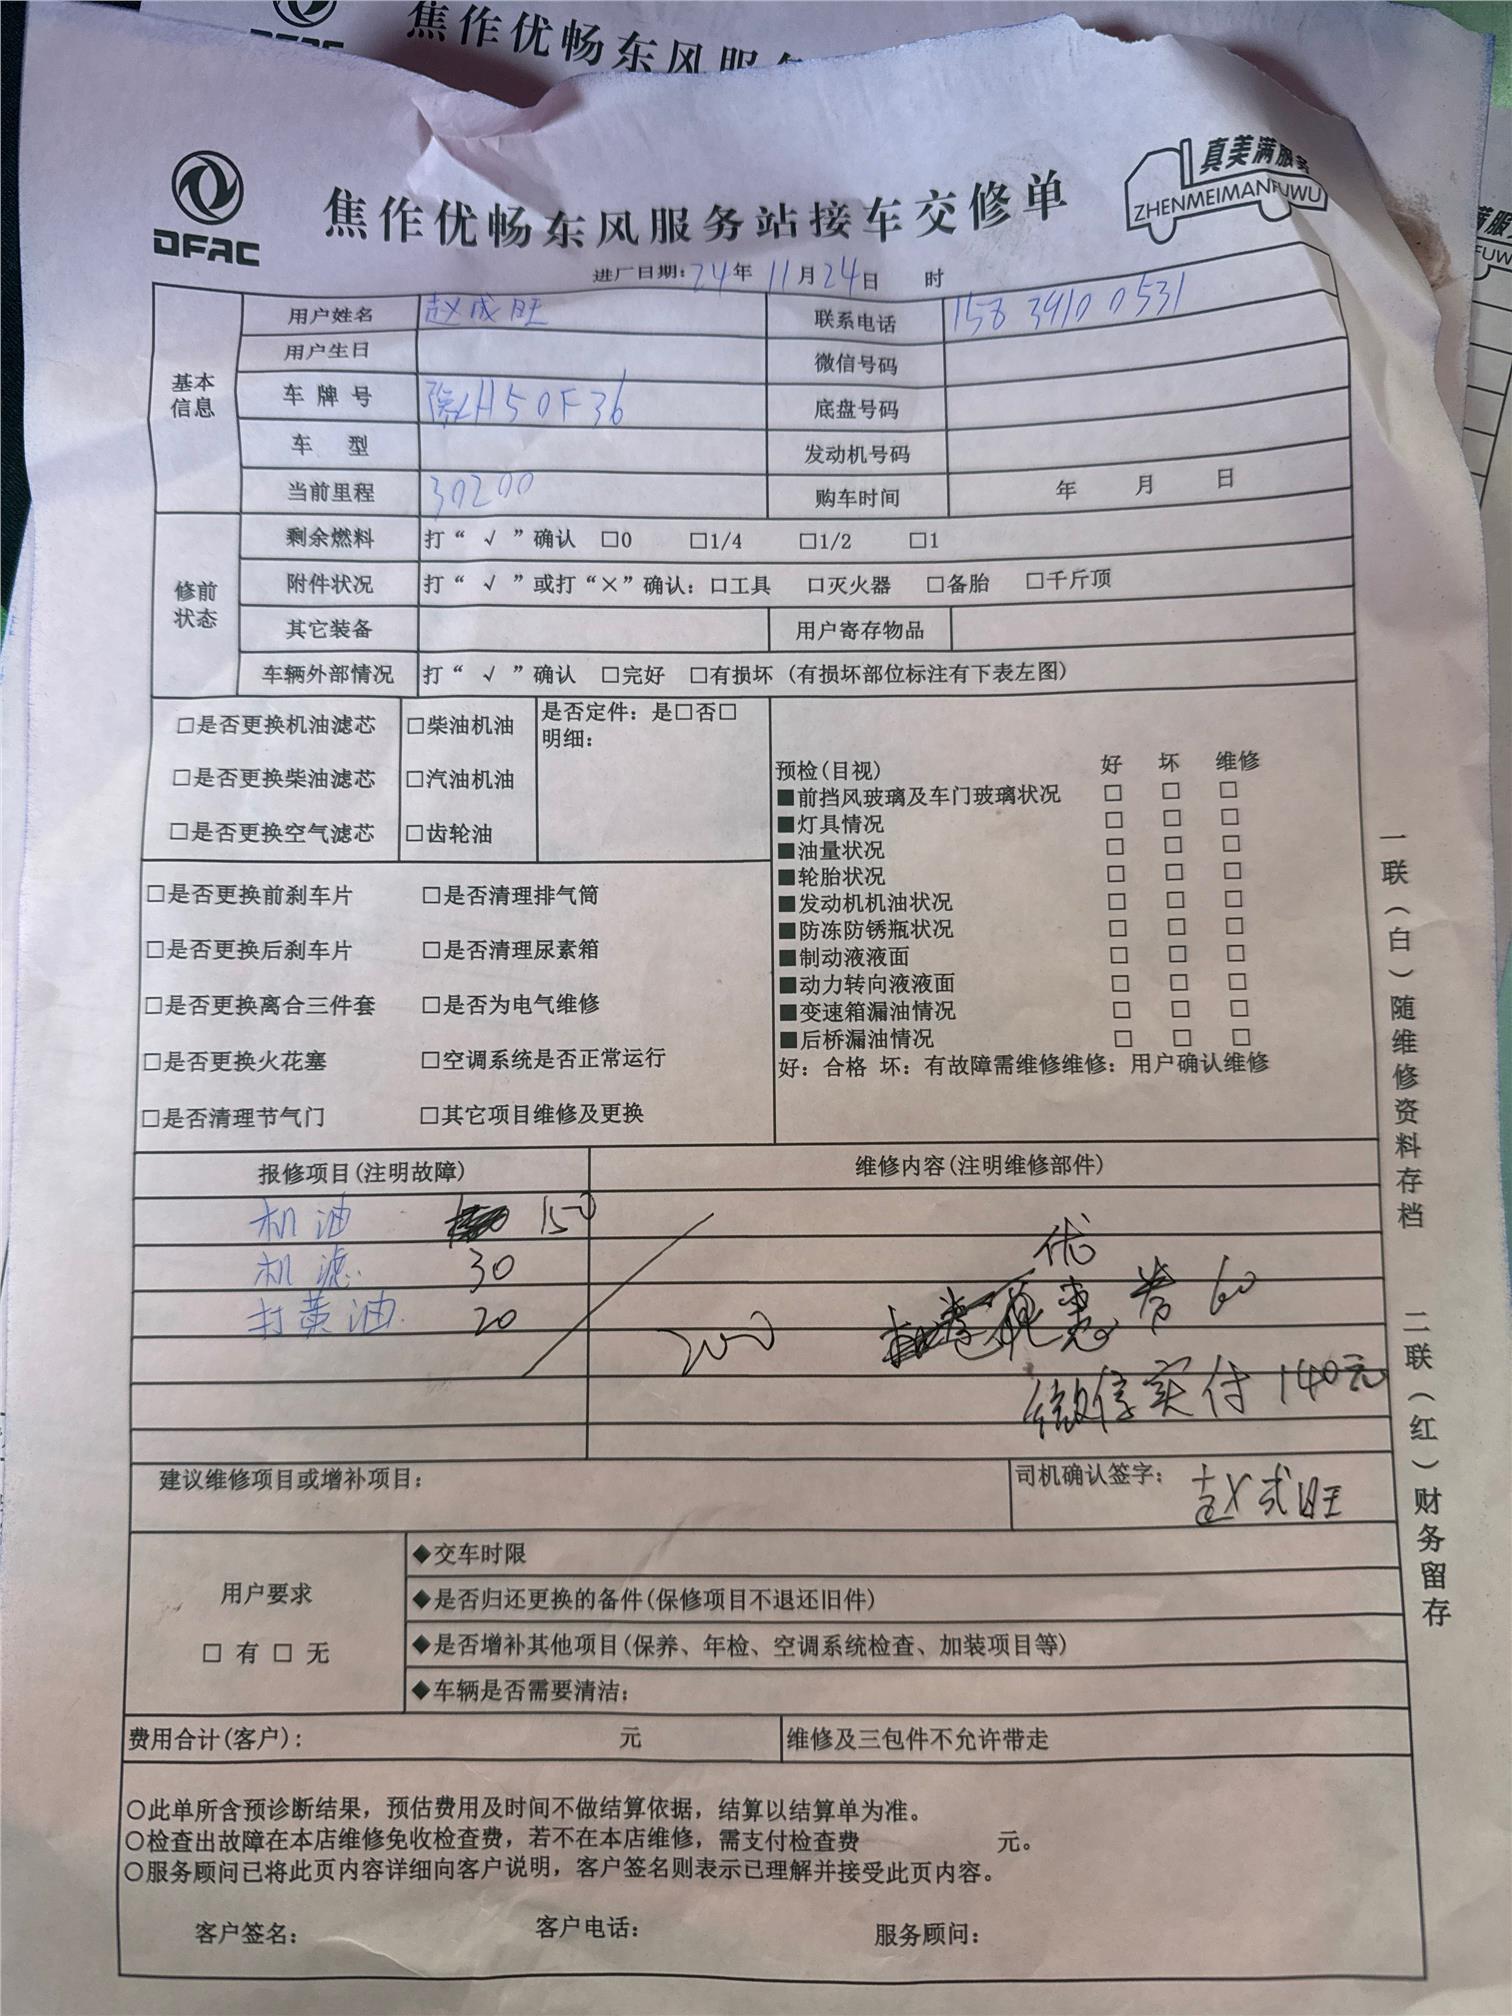 焦作优畅东风服
DFAC
真美满服务
ZHENMEIMANFUWU
焦作优畅东风服务站接车交修单
进厂日期:24年 11月24日 时
基本信息
用户姓名 赵成旺 联系电话 158 3910 0531
用户生日 微信号码
车牌号 豫H50F36 底盘号码
车型 发动机号码
当前里程 30200 购车时间 年 月 日
修前状态
剩余燃料 打“√”确认 □0 □1/4 □1/2 □1
附件状况 打“√”或打“×”确认:□工具 □灭火器 □备胎 □千斤顶
其它装备 用户寄存物品
车辆外部情况 打“√”确认 □完好 □有损坏 (有损坏部位标注有下表左图)
□是否更换机油滤芯 □柴油机油 是否定件:是□否□
明细:
□是否更换柴油滤芯 □汽油机油
□是否更换空气滤芯 □齿轮油
□是否更换前刹车片 □是否清理排气筒
□是否更换后刹车片 □是否清理尿素箱
□是否更换离合三件套 □是否为电气维修
□是否更换火花塞 □空调系统是否正常运行
□是否清理节气门 □其它项目维修及更换
预检(目视) 好 坏 维修
■前挡风玻璃及车门玻璃状况 □ □ □
■灯具情况 □ □ □
■油量状况 □ □ □
■轮胎状况 □ □ □
■发动机机油状况 □ □ □
■防冻防锈瓶状况 □ □ □
■制动液液面 □ □ □
■动力转向液液面 □ □ □
■变速箱漏油情况 □ □ □
■后桥漏油情况 □ □ □
好:合格 坏:有故障需维修维修:用户确认维修
报修项目(注明故障) 维修内容(注明维修部件)
机油 150
机滤 30
打黄油 20
200 优惠券 60
微信实付140元
建议维修项目或增补项目: 司机确认签字: 赵成旺
用户要求
□ 有 □ 无
◆交车时限
◆是否归还更换的备件(保修项目不退还旧件)
◆是否增补其他项目(保养、年检、空调系统检查、加装项目等)
◆车辆是否需要清洁:
费用合计(客户): 元 维修及三包件不允许带走
○此单所含预诊断结果,预估费用及时间不做结算依据,结算以结算单为准。
○检查出故障在本店维修免收检查费,若不在本店维修,需支付检查费 元。
○服务顾问已将此页内容详细向客户说明,客户签名则表示已理解并接受此页内容。
客户签名: 客户电话: 服务顾问:
一联(白)随维修资料存档 二联(红)财务留存